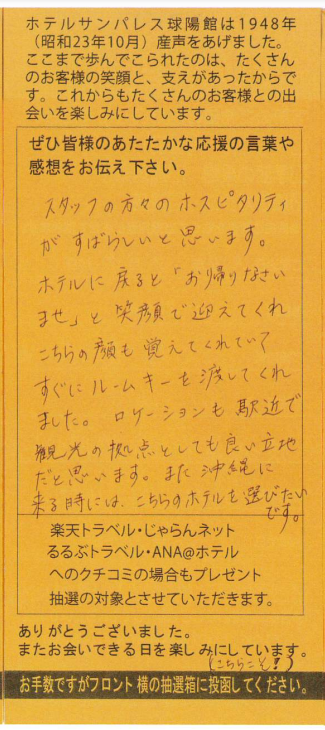 ホテルサンパレス球陽館は1948年
（昭和23年10月）産声をあげました。
ここまで歩んでこられたのは、たくさん
のお客様の笑顔と、支えがあったからで
す。これからもたくさんのお客様との出
会いを楽しみにしています。
ぜひ皆様のあたたかな応援の言葉や
感想をお伝え下さい。
スタッフの方々のホスピタリティ
がすばらしいと思います。
ホテルに戻ると「お帰りなさい
ませ」と笑顔で迎えてくれ
こちらの顔も覚えてくれていて
すぐにルームキーを渡してくれ
ました。ロケーションも駅近で
観光の拠点としても良い立地
だと思います。また沖縄に
来る時には、こちらのホテルを選びたい
です。
楽天トラベル・じゃらんネット
るるぶトラベル・ANA@ホテル
へのクチコミの場合もプレゼント
抽選の対象とさせていただきます。
ありがとうございました。
またお会いできる日を楽しみにしています。
(こちらこそ!)
お手数ですがフロント横の抽選箱に投函してください。